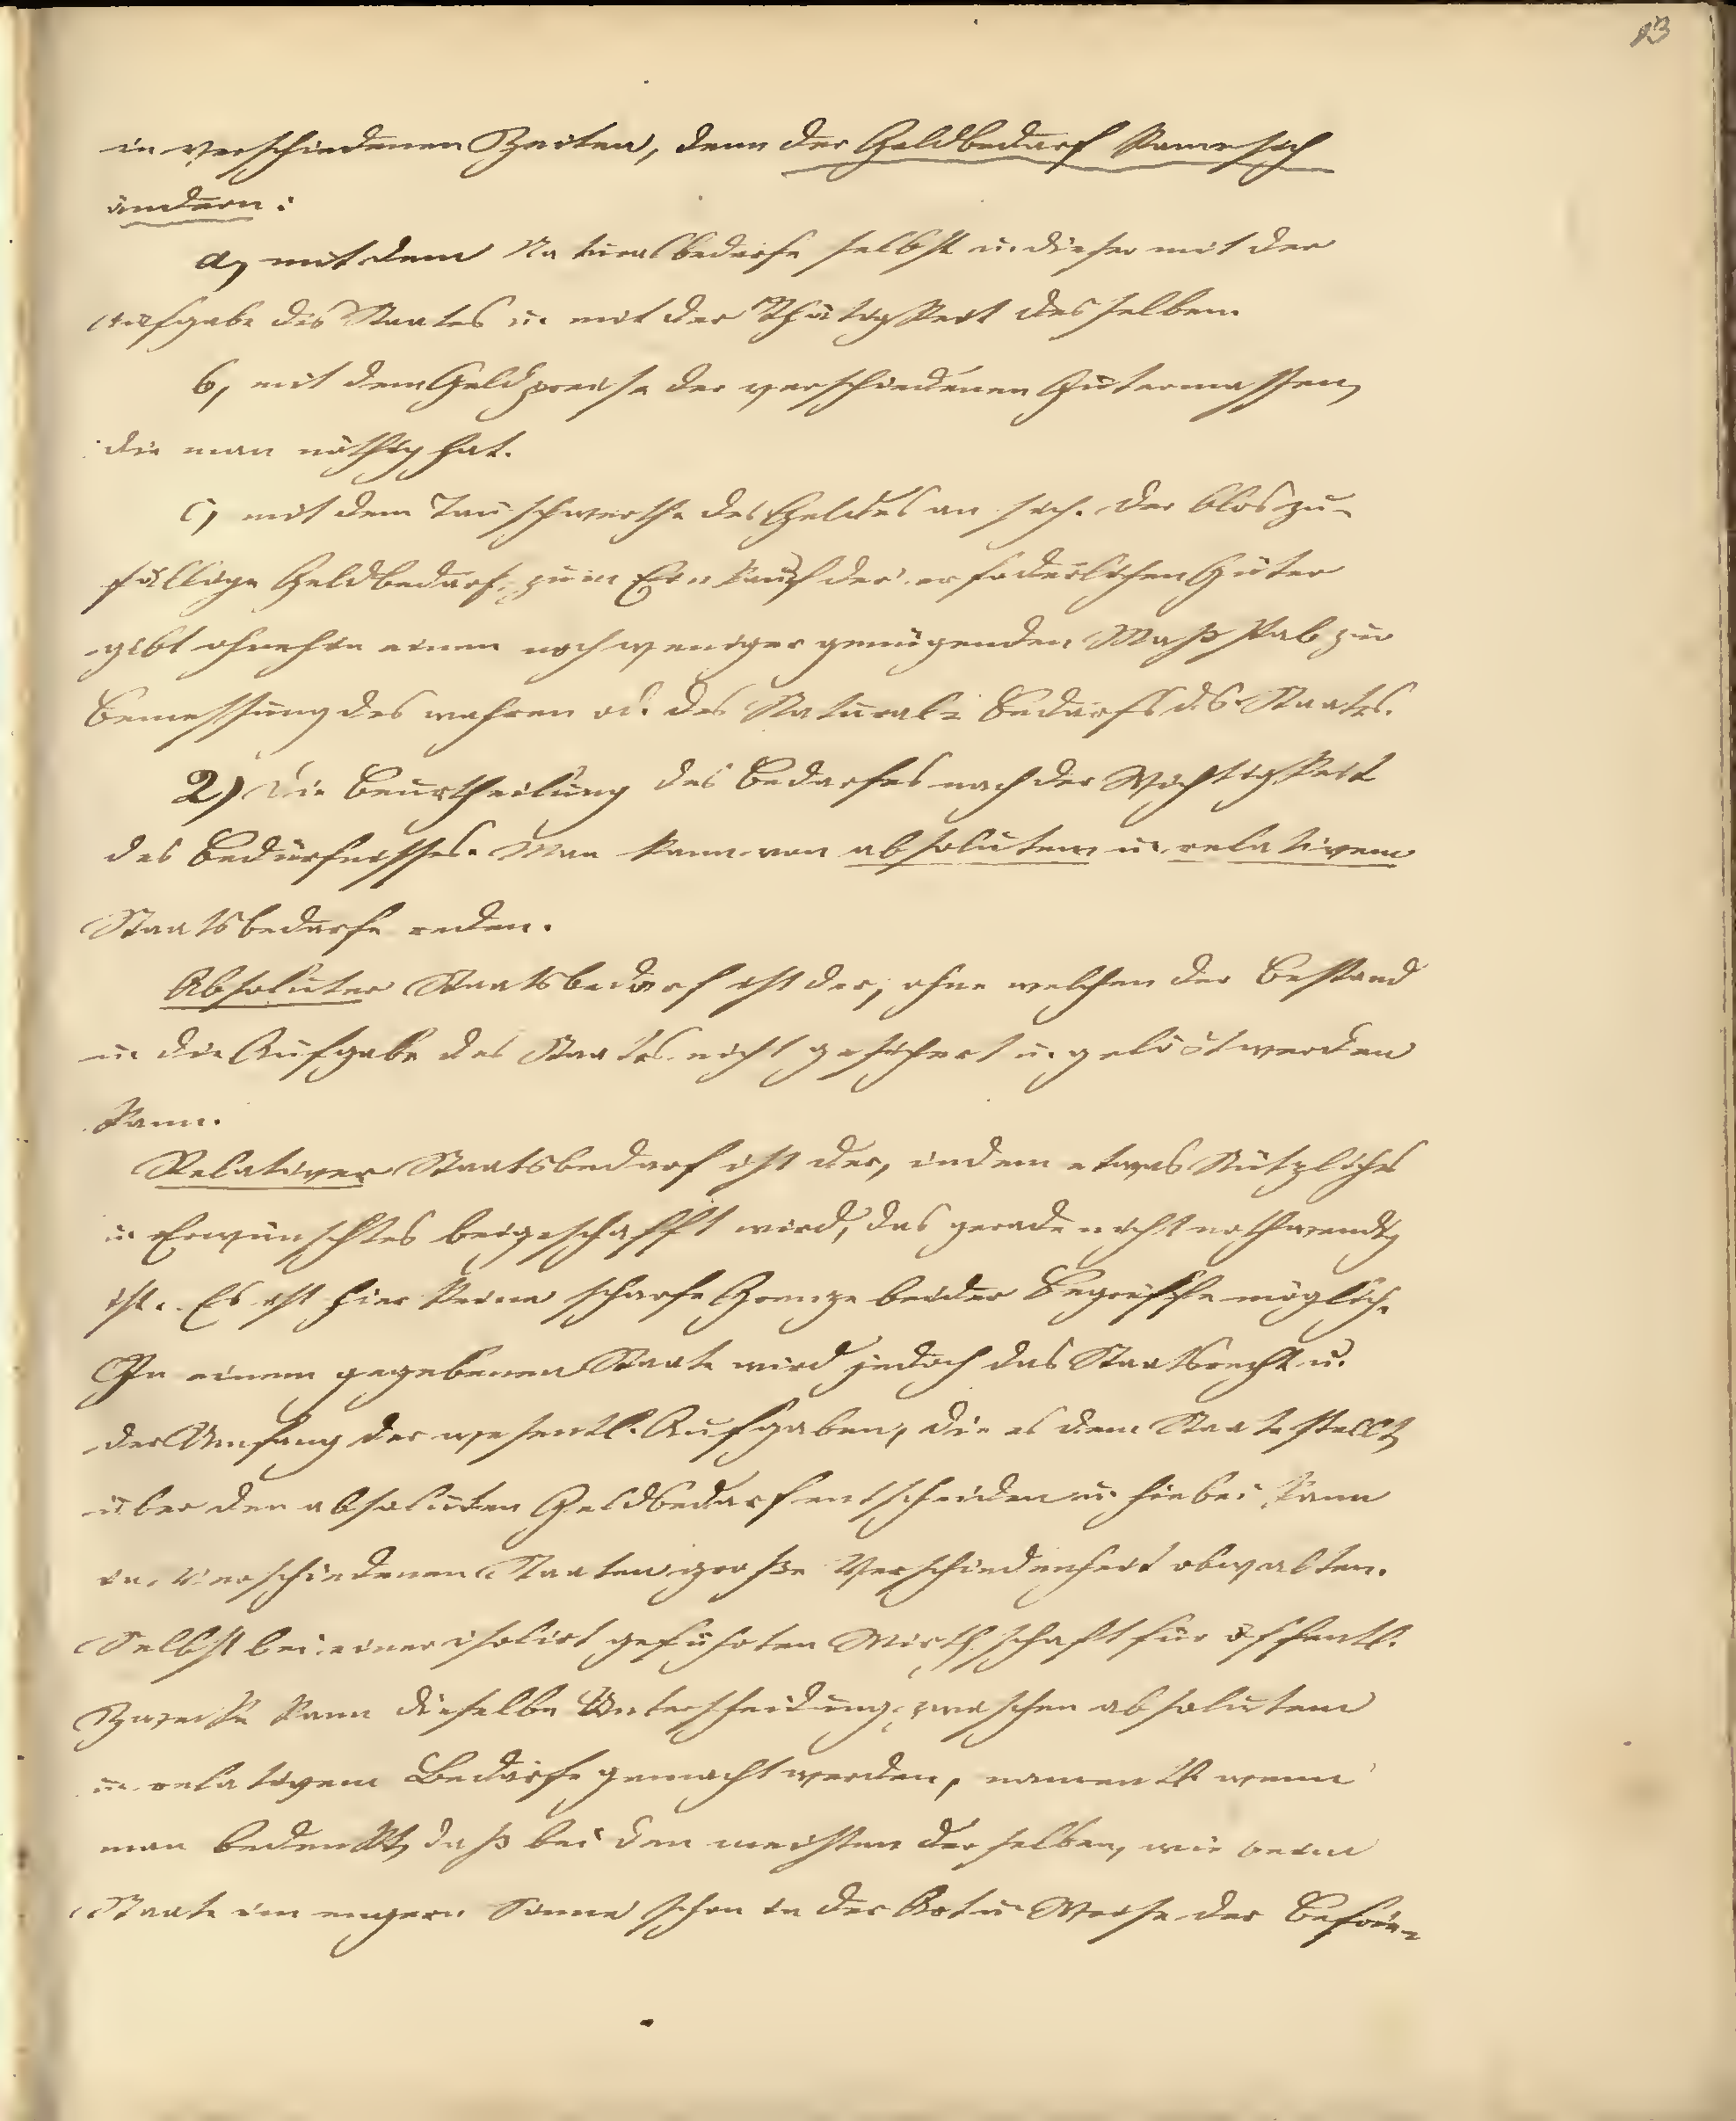 13
in verschiedenen Zeiten, denn der Geldbedarf kann sich
ändern:
a, mit dem Naturalbedarfe selbst u. dieser mit der
Aufgabe des Staates u. mit der Thätigkeit desselben.
b, mit dem Geldpreise der verschiedenen Gütermassen,
die man nöthig hat.
c, mit dem Tauschwerthe des Geldes an sich. Der blos zu-
fällige Geldbedarf zum Einkauf der erfoderlichen Güter
gibt ohnehin einen noch weniger genügenden Maßstab zur
Bemessung des wahren od. des Natural-Bedarfs des Staates.
2) Die Beurtheilung des Bedarfes nach der Wichtigkeit
des Bedürfnisses. Man kann von absolutem u. relativem
Staatsbedarfe reden.
Absoluter Staatsbedarf ist der, ohne welchen der Bestand
u. die Aufgabe des Staates nicht gesichert u. gelöst werden
kann.
Relativer Staatsbedarf ist der, indem etwas Nützliches
u. Erwünschtes beigeschafft wird, das gerade nicht nothwendig
ist. Es ist hier keine scharfe Grenze beider Begriffe möglich.
In einem gegebenen Staate wird jedoch das Staatsrecht u.
der Umfang der wesentl. Aufgaben, die es dem Staate stellt,
über den absoluten Geldbedarf entscheiden u. hiebei kann
in verschiedenen Staaten große Verschiedenheit obwalten.
Selbst bei einer isolirt geführten Wirthschaft für öffentl.
Zwecke kann dieselbe Unterscheidung zwischen absolutem
u. relativem Bedarfe gemacht werden, namentl. wenn
man bedenkt, daß bei den meisten derselben, wie beim
Staate im engern Sinne schon in der Art u. Weise der Befrie-